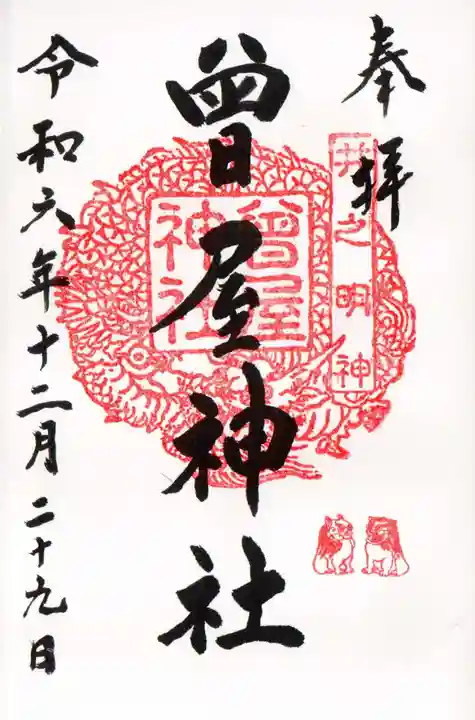 奉拝
井之明神
曾屋神社
曾屋
神社
令和六年十二月二十九日